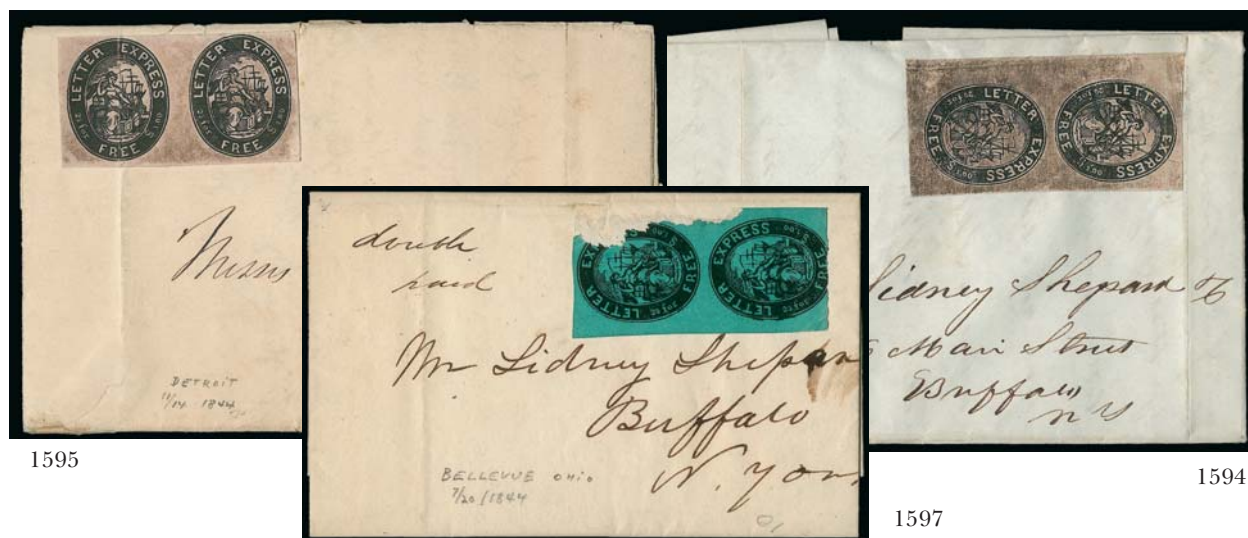 LETTER EXPRESS
FREE
LETTER EXPRESS
FREE
Messrs
DETROIT
11/14 1844
1595
double
paid
LETTER EXPRESS
FREE
LETTER EXPRESS
FREE
Mr Sidney Shepard
Buffalo
N. York
BELLEVUE OHIO
7/20/1844
1597
LETTER EXPRESS
FREE
LETTER EXPRESS
FREE
Sidney Shepard
Main Street
Buffalo
N Y
1594